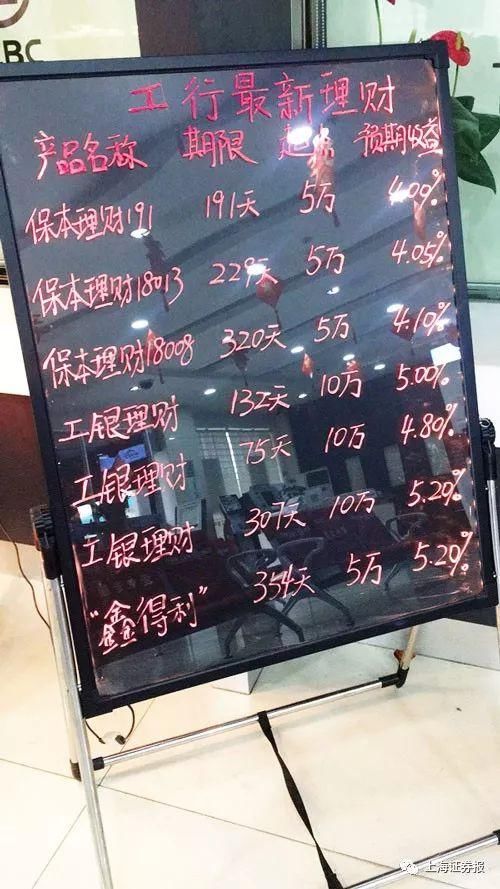 BC
工行最新理财
产品名称 期限 起点 预期收益
保本理财191 191天 5万 4.00%
保本理财18013 229天 5万 4.05%
保本理财18008 320天 5万 4.10%
工银理财 132天 10万 5.00%
工银理财 75天 10万 4.80%
工银理财 307天 10万 5.20%
“鑫得利” 354天 5万 5.20%
上海证券报